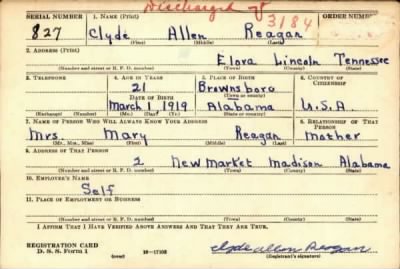 Discharged
SERIAL NUMBER 1. NAME (Print) ORDER NUMBER
827 Clyde Allen Reagan 3184
(First) (Middle) (Last)
2. ADDRESS (Print)
Elora Lincoln Tennessee
(Number and street or R. F. D. number) (Town) (County) (State)
3. TELEPHONE 4. AGE IN YEARS 5. PLACE OF BIRTH 6. COUNTRY OF CITIZENSHIP
21 Brownsboro
DATE OF BIRTH (Town or county)
March 1 1919 Alabama U.S.A.
(Exchange) (Number) (Mo.) (Day) (Yr.) (State or country)
7. NAME OF PERSON WHO WILL ALWAYS KNOW YOUR ADDRESS 8. RELATIONSHIP OF THAT PERSON
Mrs. Mary Reagan Mother
(Mr., Mrs., Miss) (First) (Middle) (Last)
9. ADDRESS OF THAT PERSON
2 New Market Madison Alabama
(Number and street or R. F. D. number) (Town) (County) (State)
10. EMPLOYER'S NAME
Self
11. PLACE OF EMPLOYMENT OR BUSINESS
(Number and street or R. F. D. number) (Town) (County) (State)
I AFFIRM THAT I HAVE VERIFIED ABOVE ANSWERS AND THAT THEY ARE TRUE.
REGISTRATION CARD
D. S. S. Form 1 Clyde Allen Reagan
(Registrant's signature)